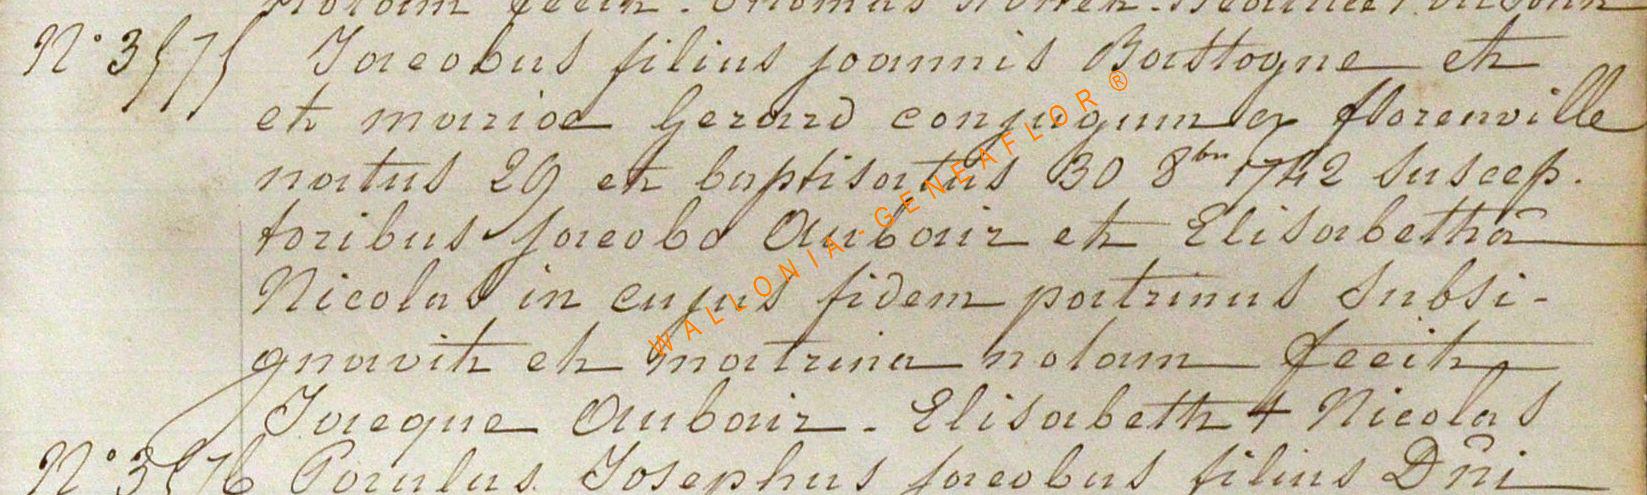 notam fecit. Thomas
N° 3575 Jacobus filius joannis Bastogne et
et mariae Gerard conjugum ex florenville
natus 29 et baptisatus 30 8bri 1742 suscep.
toribus jacobo Aubair et Elisabetha
Nicolas in cujus fidem patrinus subsi-
gnavit et matrina notam fecit
Jacque Aubair - Elisabeth + Nicolas
N° 3576 Paulus Josephus jacobus filius Dñi
WALLONIA-GENEAFLOR®